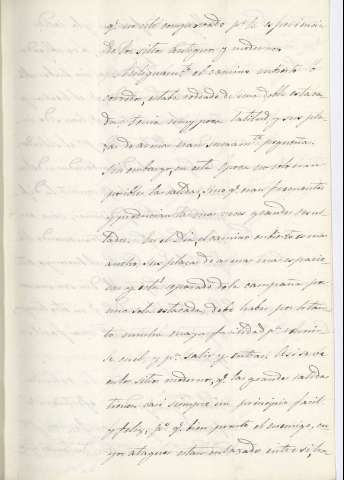 qe. no este comparado pr. la esperiencia
de los sitios antiguos y modernos
Antiguamte. el camino cubierto ó
corredor, estaba rodeado de una doble estaca-
da, tenia muy poca latitud y sus pla-
zas de armas eran sumamte. pequeñas.
Sin embargo, en esta epoca no solo eran
posibles las salidas, sino qe. eran frecuentes
y producian las mas veces grandes resul-
tados. En el dia, el camino cubierto es mas
ancho, sus plazas de armas mas espacio-
sas y está separado de la campaña por
una sola estacada; debe haber por lo tan-
to mucha mayor facilidad pa. reunir-
se en él, y pa. salir y entrar. Asi se ve
en los sitios modernos, qe. las grandes salidas
tienen casi siempre un principio facil
y feliz; po. qe. bien pronto el enemigo, cu-
yos ataques estan enlazados entre si, ha